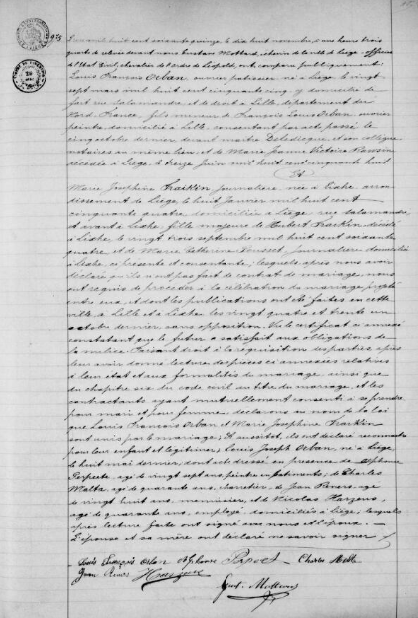 L'an mil huit cent soixante quinze, le dix huit novembre, à une heure trois
quarts de relevée devant nous Gustave Mottard, échevin de la ville de Liége, officier
de l'État Civil, chevalier de l'ordre de Léopold, ont comparu publiquement
Louis François Orban ouvrier patissier né à Liége le vingt
sept mars mil huit cent cinquante cinq, y domicilié de
fait rue Salamandre et de droit à Lille, département du
Nord France, fils mineur de François Louis Orban, ouvrier
peintre domicilié à Lille, consentant par acte passé le
cinq octobre dernier devant maître et son collègue
notaires au même lieu et de Marie Jeanne Victoire
décédée à Liége, le treize Juin mil huit cent cinquante huit
Et
Marie Josephine Fraikin journalière née à Lixhe arron
dissement de Liége, le huit Janvier mil huit cent
cinquante quatre, domiciliée à Liége rue Salamandre
et avant à Lixhe, fille majeure de Hubert Fraikin décédé
à Lixhe le vingt trois septembre mil huit cent soixante
quatre et de Marie Catherine journalière domiciliée
à Lixhe, ci présente et consentante, lesquels après nous avoir
déclaré qu'ils n'ont pas fait de contrat de mariage, nous
ont requis de procéder à la célébration du mariage projeté
entre eux et dont les publications ont été faites en cette
ville, à Lille et à Lixhe les vingt quatre et trente un
octobre dernier sans opposition. Vu le certificat ci annexé
constatant que le futur a satisfait aux obligations de
la milice. Faisant droit à la réquisition des parties après
leur avoir donné lecture des pièces ci annexées relatives
à leur état et aux formalités du mariage ainsi que
du chapitre six du code civil au titre du mariage et les
contractants ayant mutuellement consenti à se prendre
pour mari et pour femme, déclarons au nom de la loi
que Louis François Orban et Marie Josephine Fraikin
sont unis par le mariage; Et aussitôt, ils ont déclaré reconnaître
pour leur enfant et légitimer; Louis Joseph Orban, né à Liége
le huit mai dernier, dont acte dressé en présence de Alphonse
âgé de vingt sept ans, peintre en bâtiments, de Charles
âgé de quarante ans, charretier, de Jean âgé
de vingt huit ans, menuisier, et de Nicolas
âgé de quarante ans, employé domiciliés à Liége, lesquels
après lecture faite ont signé avec nous et l'époux. —
L'épouse et sa mère ont déclaré ne savoir signer
Louis François Orban Alphonse Charles
Jean
Gust. Mottard